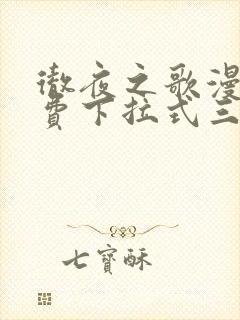 徹夜之歌漫
費下拉式三
七寶酥